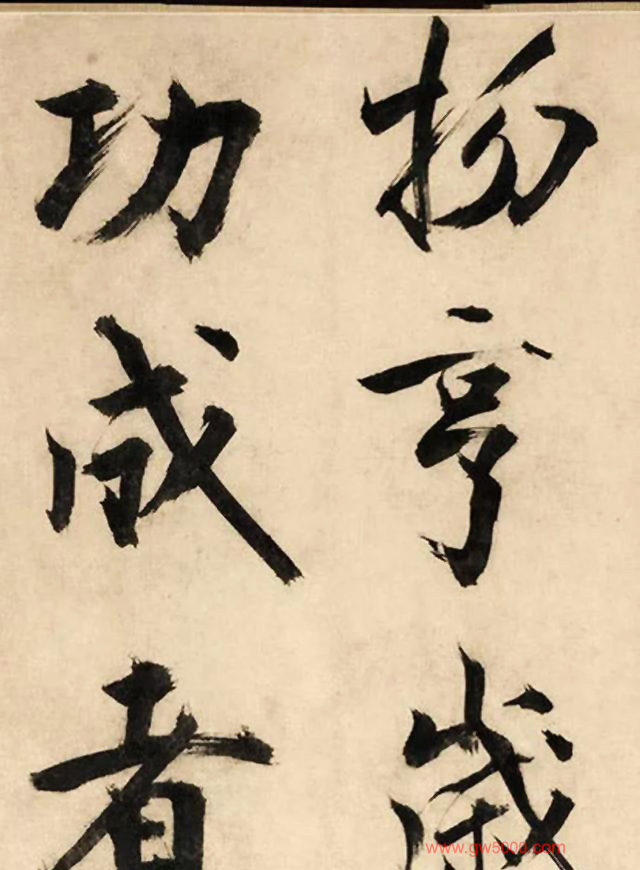 物亨歲
功成者
www.gw5000.com